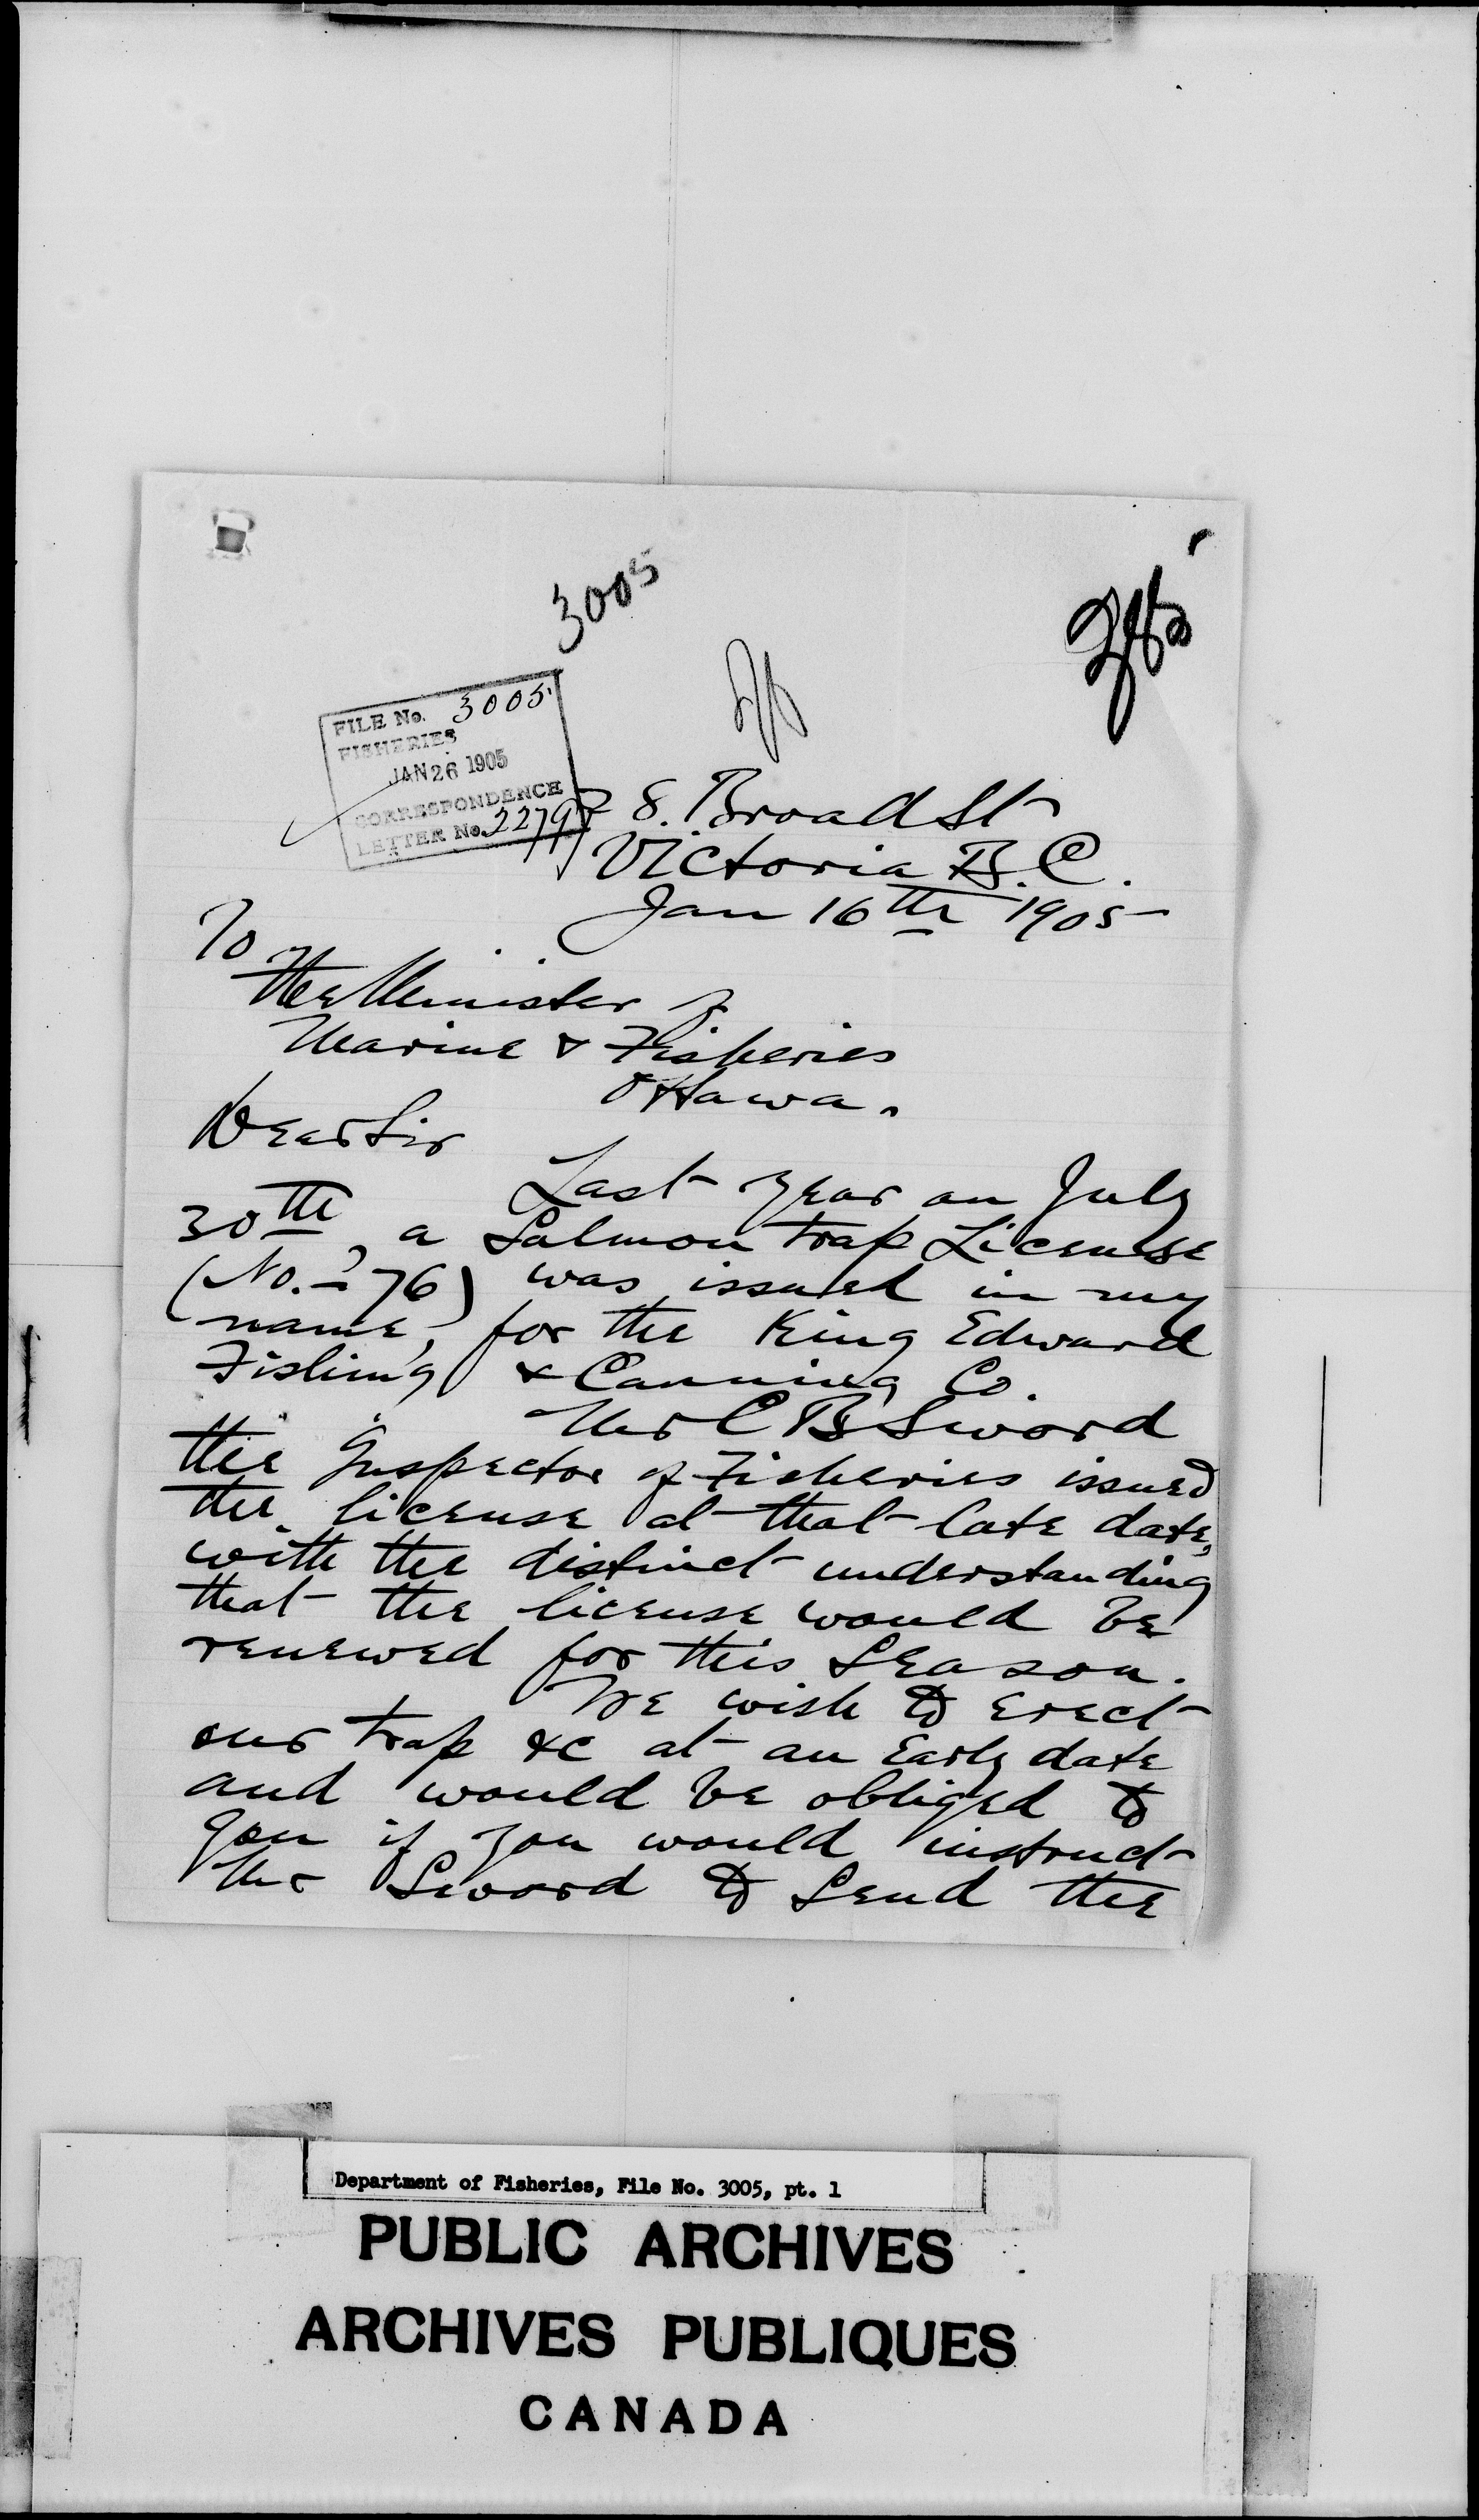 3005
FILE No. 3005
FISHERIES
JAN 26 1905
CORRESPONDENCE
LETTER No.
8. Broad St
Victoria B.C.
Jan 16th 1905
To
The Minister of
Marine & Fisheries
Ottawa.
Dear Sir
Last year on July
30th, a Salmon trap License
(No. 76) was issued in my
name, for the King Edward
Fishing & Canning Co.
Mr C B Sword
the Inspector of Fisheries issued
the license at that late date,
with the distinct understanding
that the license would be
renewed for this Season.
We wish to erect
our trap &c at an Early date
and would be obliged to
you if you would instruct
Mr Sword to Send the
Department of Fisheries, File No. 3005, pt. 1
PUBLIC ARCHIVES
ARCHIVES PUBLIQUES
CANADA